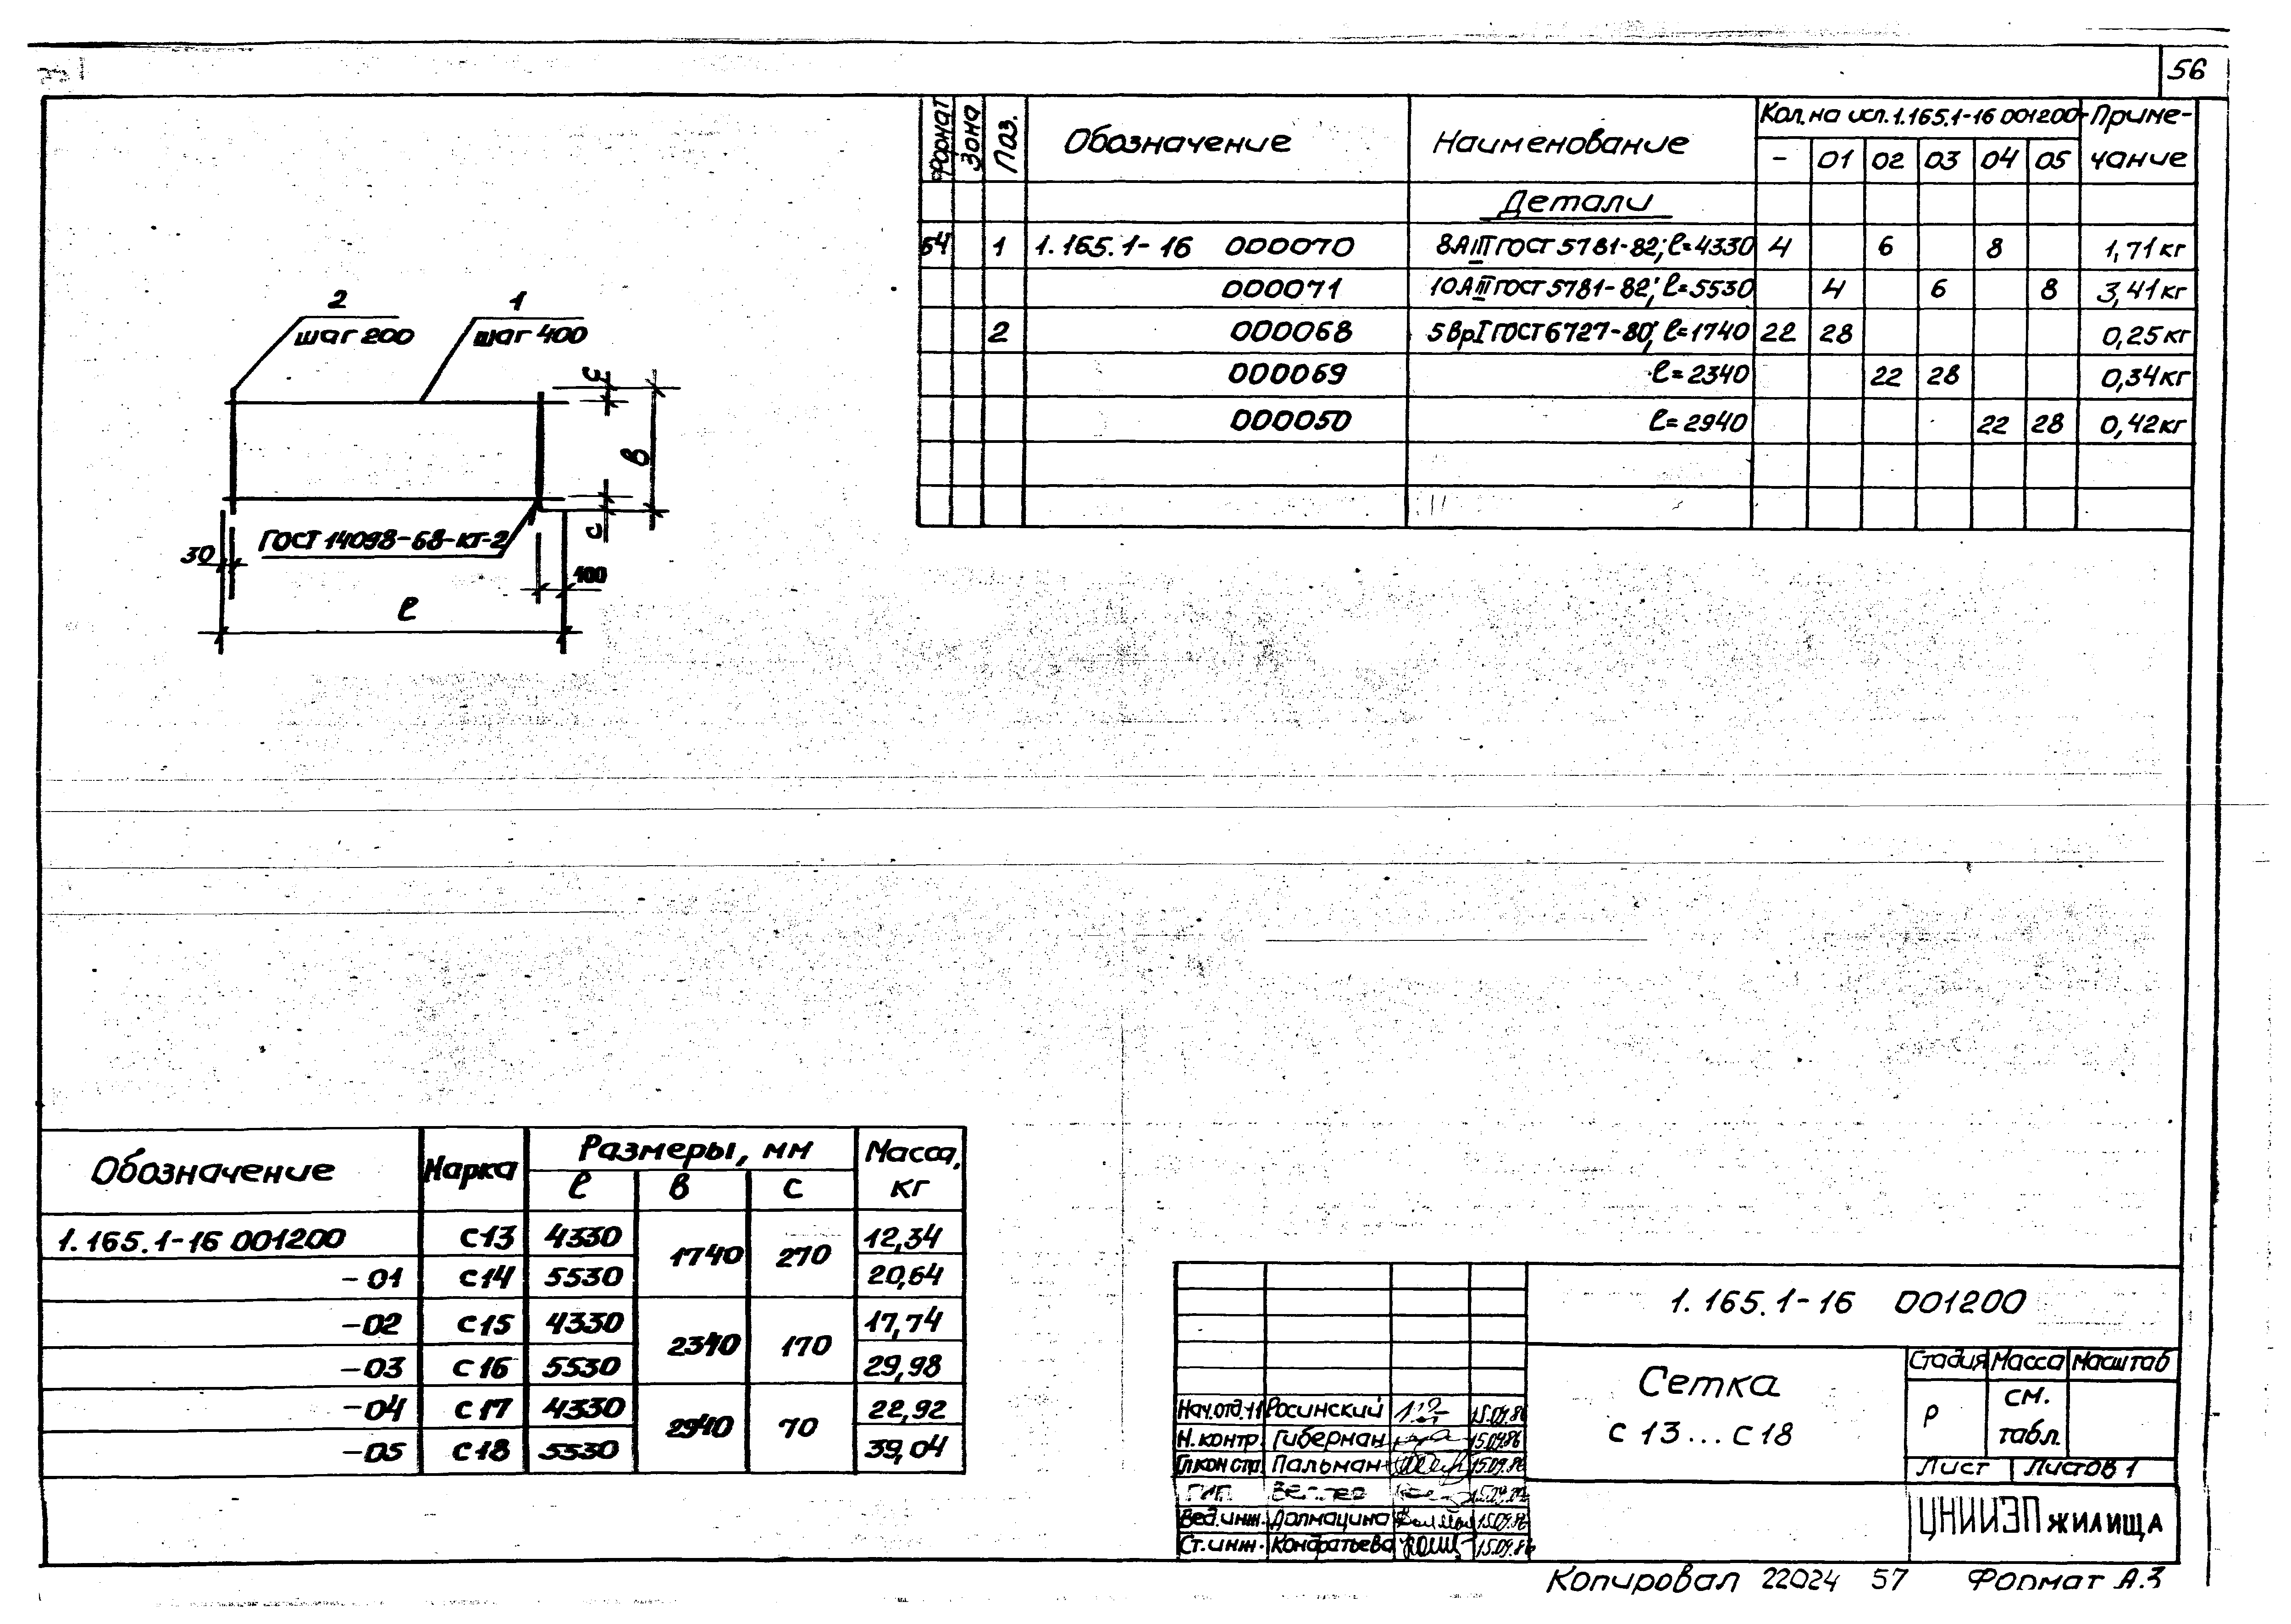 56
Формат Зона Поз. Обозначение Наименование Кол. на исп. 1.165.1-16 001200- Приме-
- 01 02 03 04 05 чание
Детали
Б4 1 1.165.1-16 000070 8АIII ГОСТ 5781-82; ℓ=4330 4 6 8 1,71кг
000071 10АIII ГОСТ 5781-82; ℓ=5530 4 6 8 3,41кг
2 000068 5ВрI ГОСТ 6727-80; ℓ=1740 22 28 0,25кг
000069 ℓ=2340 22 28 0,34кг
000050 ℓ=2940 22 28 0,42кг
2 1
шаг 200 шаг 400
с
в
с
ГОСТ 14098-68-КТ-2
30
100
ℓ
Обозначение Марка Размеры, мм Масса,
ℓ в с кг
1.165.1-16 001200 С13 4330 1740 270 12,34
-01 С14 5530 20,64
-02 С15 4330 2340 170 17,74
-03 С16 5530 29,98
-04 С17 4330 2940 70 22,92
-05 С18 5530 39,04
1.165.1-16 001200
Сетка
С 13...С18
Стадия Масса Масштаб
Р см.
табл.
Лист Листов 1
ЦНИИЭП жилища
Нач.отд.11 Росинский 15.09.86
Н.контр. Гиберман 15.09.86
Гл.кон.отд. Пальман 15.09.86
ГИП
Вед.инж. Долмацина 15.09.86
Ст.инж. Кондратьева 15.09.86
Копировал 22024 57 Формат А.3